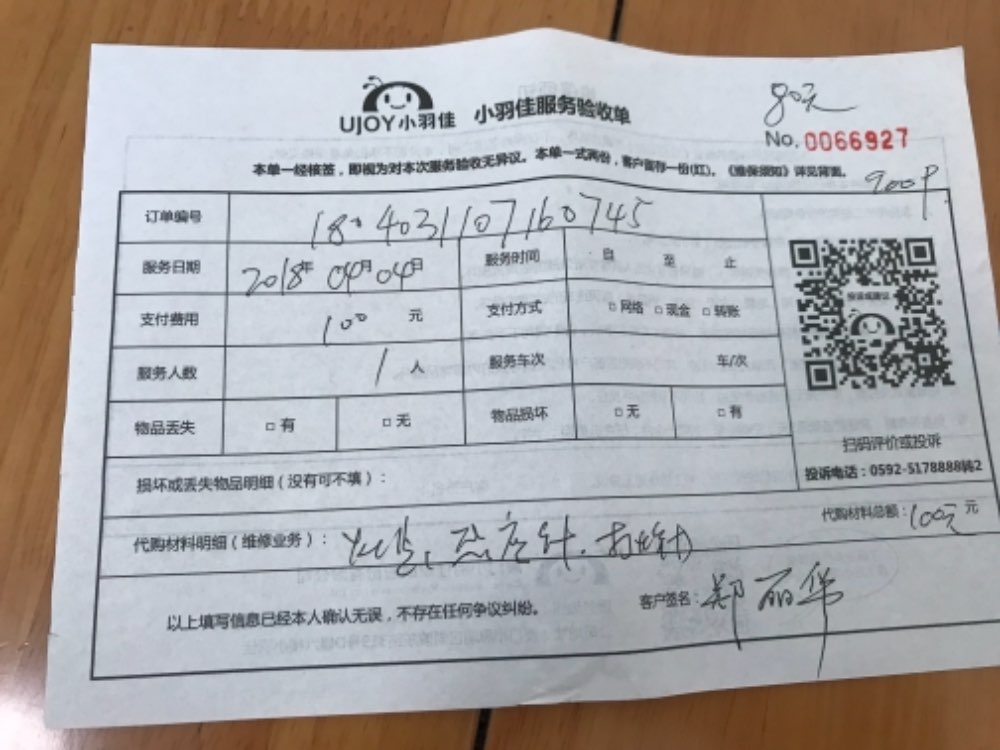 UJOY小羽佳 小羽佳服务验收单
80天
No. 0066927
本单一经核签，即视为对本次服务验收无异议。本单一式两份，客户留存一份(红)。《维保须知》详见背面。
900P
订单编号 18040311107160745
服务日期 2018年 04月 04日 服务时间 自 至 止
支付费用 100 元 支付方式 □ 网络 □ 现金 □ 转账
服务人数 1 人 服务车次 车/次
物品丢失 □ 有 □ 无 物品损坏 □ 无 □ 有
投诉或建议
扫码评价或投诉
投诉电话：0592-5178888转2
损坏或丢失物品明细（没有可不填）：
代购材料明细（维修业务）：
代购材料总额：100元 元
以上填写信息已经本人确认无误，不存在任何争议纠纷。
客户签名：郑丽华